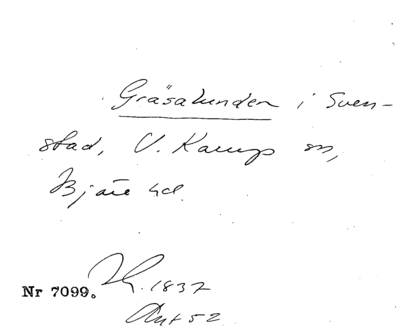 Gräsalunden i Sven-
stad, V. Karup sn,
Bjäre hd.
Nr 7099.
1837
Ant 52